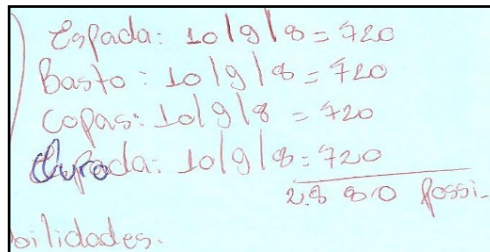 Espada: 10|9|8 = 720
Basto: 10|9|8 = 720
Copas: 10|9|8 = 720
10|9|8 = 720
2880 possi-
bilidades.